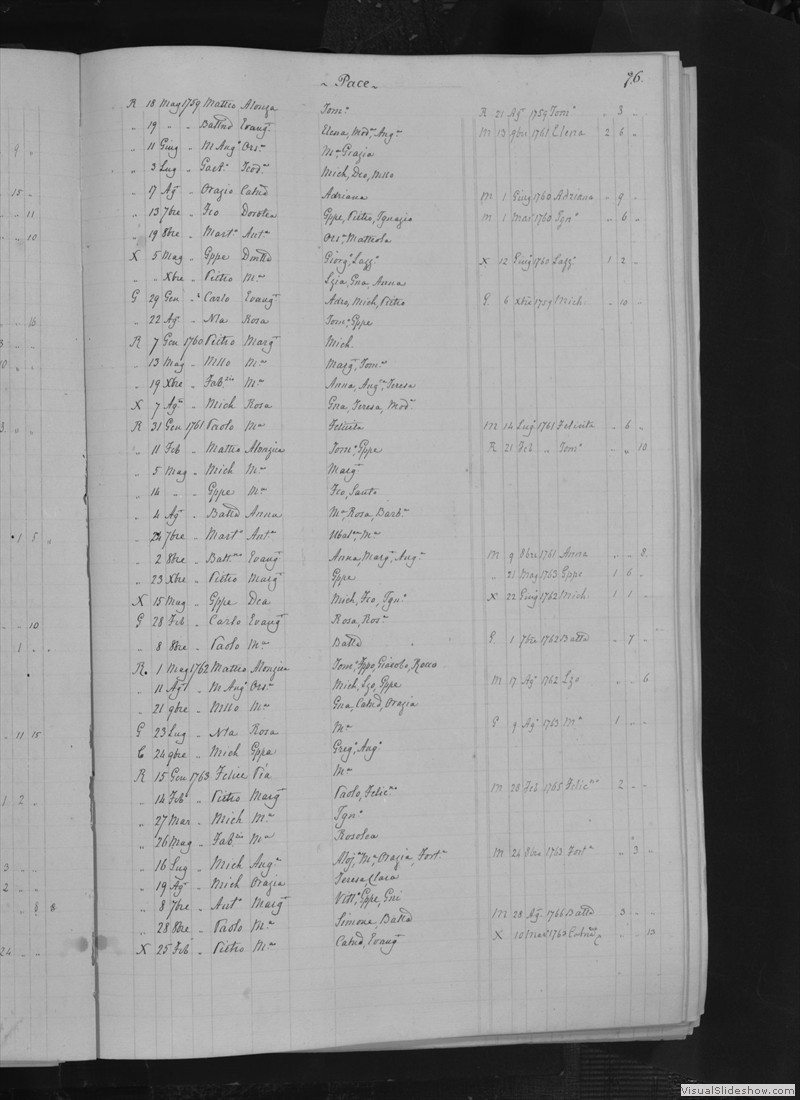 ~ Pace ~ 96.
R 18 Mag 1759 Matteo Alonza Tom.a R 21 Ag.t 1759 Tom.a „ 3 „
„ 19 „ „ Battad Evang.ta Elena, Mod.a Ang.a M 13 9bre 1761 Elena 2 6 „
„ 11 Giug „ M Ang.o Ors.a M.a Grazia
„ 3 Lug „ Gaet.o Teod.a Mich, Dco, Mllo
„ 17 Ag.t „ Orazio Catnd Adriana M 1 Giug 1760 Adriana „ 9 „
„ 13 7bre „ Fco Dorotea Gppe, Pietro, Ignazio M 1 Mar 1760 Ign.o „ 6 „
„ 19 8bre „ Mart.o Ant.a Ors.a Matteola
X 5 Mag „ Gppe Dmtla Giorg.o Lazz.o X 12 Giug 1760 Lazz.o 1 2 „
„ „ Xbre „ Pietro M.a Lzia, Gna, Anna
G 29 Gen „ Carlo Evang.ta Adeo, Mich, Pietro G 6 Xbre 1759 Mich. „ 10 „
„ 22 Ag.t „ Nla Rosa Tom.o Gppe
R 7 Gen 1760 Pietro Marg.ta Mich.
„ 13 Mag „ Mllo M.a Marg.ta Tom.a
„ 19 Xbre „ Fab.zio M.a Anna, Ang.a Teresa
X 7 Ag.t „ Mich Rosa Gna, Teresa, Mod.a
R 31 Gen 1761 Paolo M.a Felicita M 14 Lug 1761 Felicita „ 6 „
„ 11 Feb „ Matteo Alonzia Tom.o Gppe R 21 Feb „ Tom.o „ „ 10
„ 5 Mag „ Mich M.a Marg.ta
„ 14 „ „ Gppe M.a Fco, Santo
„ 4 Ag.t „ Battd Anna M.a Rosa, Barb.a
„ 24 7bre „ Mart.o Ant.a Ubal.a M.a
„ 2 8bre „ Batt. Evang.ta Anna, Marg.ta Ang.a M 9 8bre 1761 Anna „ „ 8
„ 23 Xbre „ Pietro Marg.ta Gppe „ 21 Mag 1763 Gppe 1 6 „
X 15 Mag „ Gppe Dea Mich, Fco, Ign.o X 22 Giug 1762 Mich. 1 1 „
G 28 Feb „ Carlo Evang.ta Rosa, Ros.a
„ 8 8bre „ Paolo M.a Batta G 1 7bre 1762 Batta „ 7 „
R. 1 Mag 1762 Matteo Alonzia Tom.o Fppo, Giacobo, Rocco
„ 11 Ag.t „ M Ang.o Ors.a Mich, Lzo, Gppe M 17 Ag.t 1762 Lzo „ „ 6
„ 21 9bre „ Mllo M.a Gna, Catnd, Orazia
G 23 Lug „ Nla Rosa M.a G 9 Ag.t 1763 M.a 1 „ „
C 24 9bre „ Mich Gppa Greg.o Ang.o
R 15 Gen 1763 Felice Pia M.a
„ 14 Feb „ Pietro Marg.ta Paolo, Felic. M 20 Feb 1765 Felic. 2 „ „
„ 27 Mar „ Mich M.a Ign.o
„ 26 Mag „ Fab.zio M.a Rosolea
„ 16 Lug „ Mich Ang.a Aloj.a M.a Orazia, Fort.a M 24 8bre 1763 Fort.a „ 3 „
„ 19 Ag.t „ Mich Orazia Teresa, Clara
„ 8 7bre „ Ant.o Marg.ta Vitt.o Gppe, Gni
„ 28 8bre „ Paolo M.a Simone Batta M 28 Ag.t 1766 Batta 3 „ „
X 25 Feb „ Pietro M.a Catnd, Evang.ta X 10 Mar 1763 „ „ 13
VisualSlideshow.com